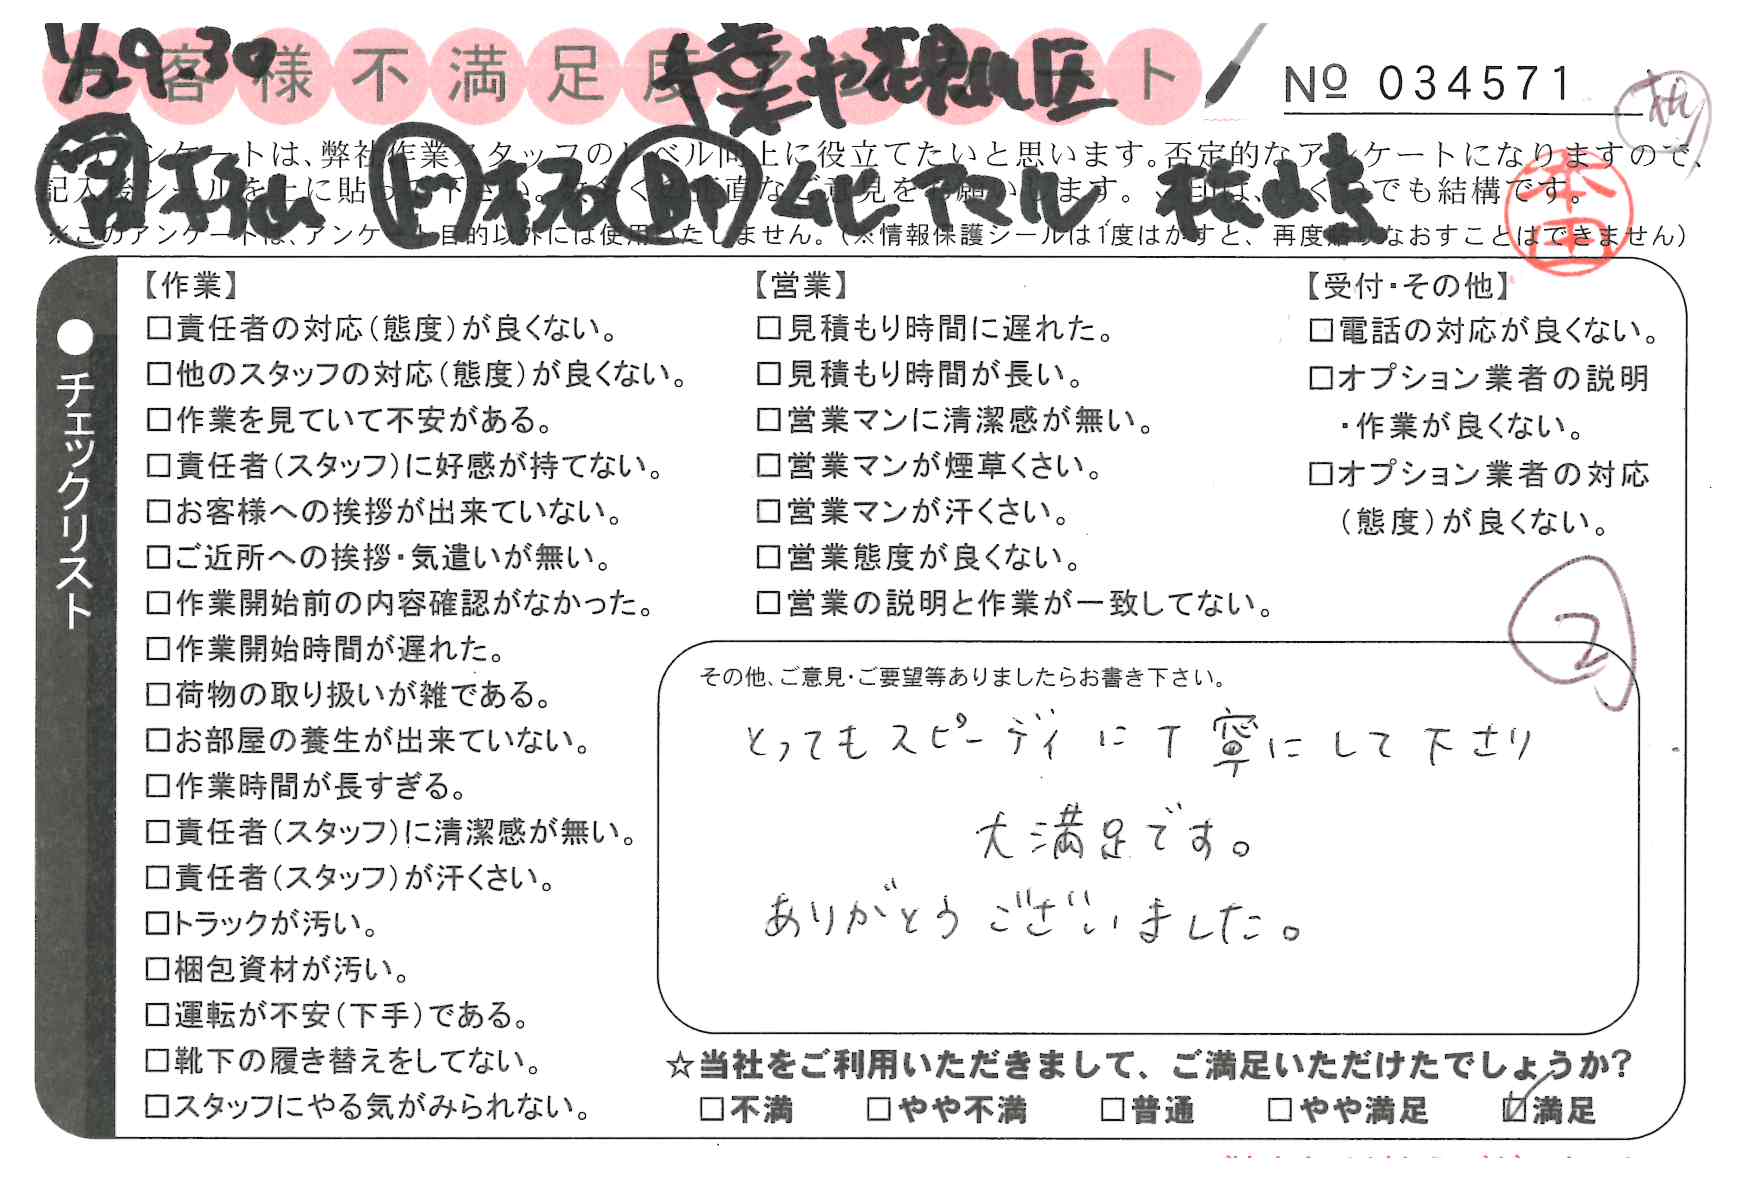 1/29 9:30 千葉市花見川区
お客様不満足度アンケート
№ 034571
アンケートは、弊社作業スタッフのレベル向上に役立てたいと思います。否定的なアンケートになりますので、
記入後シールを上に貼って下さい。
くつでも結構です。
本田
※このアンケートは、アンケート目的以外には使用いたしません。(※情報保護シールは1度はがすと、再度貼りなおすことはできません)
●チェックリスト
【作業】
□責任者の対応(態度)が良くない。
□他のスタッフの対応(態度)が良くない。
□作業を見ていて不安がある。
□責任者(スタッフ)に好感が持てない。
□お客様への挨拶が出来ていない。
□ご近所への挨拶・気遣いが無い。
□作業開始前の内容確認がなかった。
□作業開始時間が遅れた。
□荷物の取り扱いが雑である。
□お部屋の養生が出来ていない。
□作業時間が長すぎる。
□責任者(スタッフ)に清潔感が無い。
□責任者(スタッフ)が汗くさい。
□トラックが汚い。
□梱包資材が汚い。
□運転が不安(下手)である。
□靴下の履き替えをしてない。
□スタッフにやる気がみられない。
【営業】
□見積もり時間に遅れた。
□見積もり時間が長い。
□営業マンに清潔感が無い。
□営業マンが煙草くさい。
□営業マンが汗くさい。
□営業態度が良くない。
□営業の説明と作業が一致してない。
【受付・その他】
□電話の対応が良くない。
□オプション業者の説明
・作業が良くない。
□オプション業者の対応
(態度)が良くない。
2
その他、ご意見・ご要望等ありましたらお書き下さい。
とってもスピーディに丁寧にして下さり
大満足です。
ありがとうございました。
☆当社をご利用いただきまして、ご満足いただけたでしょうか?
□不満 □やや不満 □普通 □やや満足 ☑満足